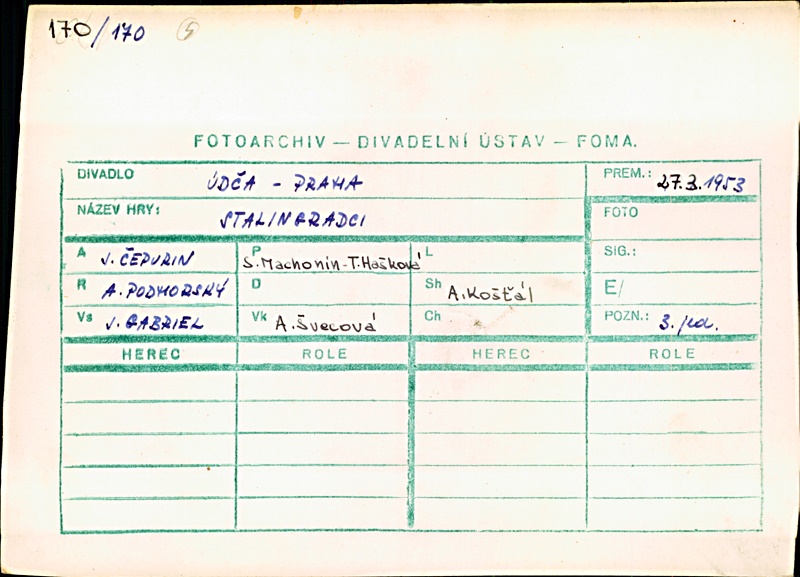 170/170 5
FOTOARCHIV — DIVADELNÍ ÚSTAV — FOMA.
DIVADLO ÚDČA - PRAHA PREM.: 27.3.1953
NÁZEV HRY: STALINGRADCI FOTO
A J. ČEPURIN P S. Machonin-T. Hašková L SIG.:
R A. PODHORSKÝ D Sh A. Košťál E/
Vs J. GABRIEL Vk A. Švecová Ch POZN.: 3.
HEREC ROLE HEREC ROLE